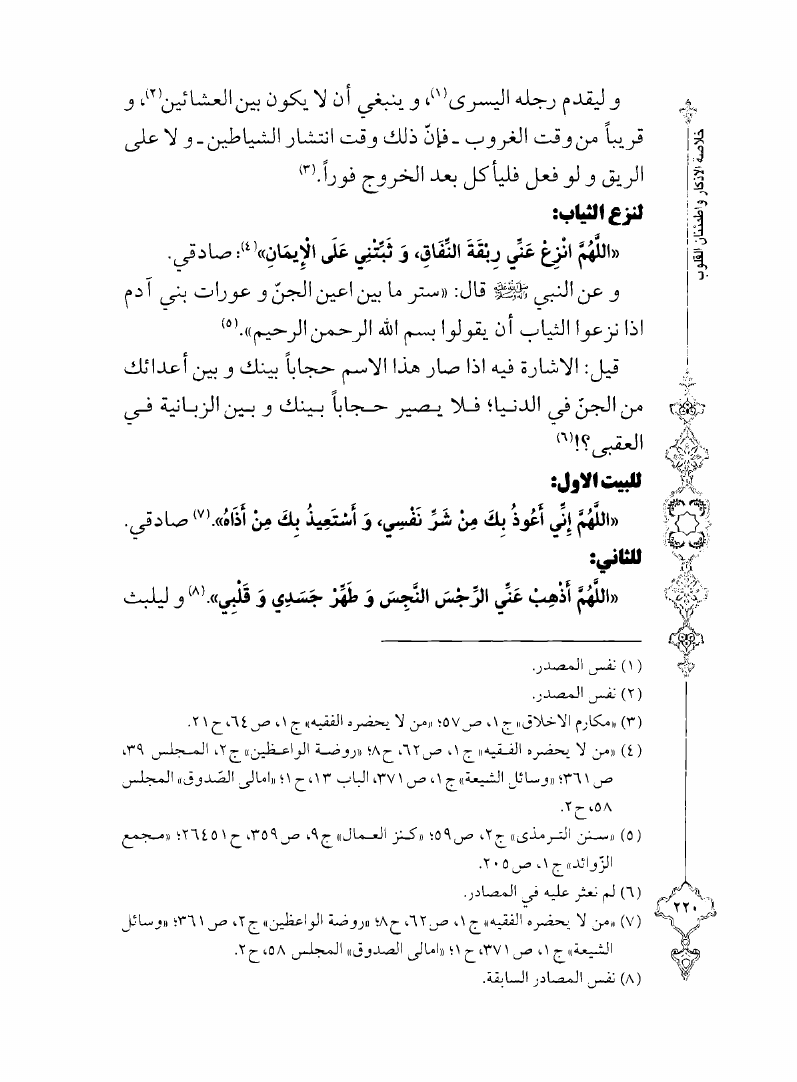 و ليقدم رجله اليسرى(١)، و ينبغي أن لا يكون بين العشائين(٢)، و
قريباً من وقت الغروب ـ فإنّ ذلك وقت انتشار الشياطين ـ و لا على
الريق و لو فعل فليأكل بعد الخروج فوراً.(٣)
لنزع الثياب:
«اللَّهُمَّ انْزِعْ عَنِّي رِبْقَةَ النِّفَاقِ، وَ ثَبِّتْنِي عَلَى الْإِيمَانِ»(٤): صادقي.
و عن النبي ﷺ قال: «ستر ما بين اعين الجنّ و عورات بني آدم
اذا نزعوا الثياب أن يقولوا بسم الله الرحمن الرحيم».(٥)
قيل: الاشارة فيه اذا صار هذا الاسم حجاباً بينك و بين أعدائك
من الجنّ في الدنيا؛ فلا يصير حجاباً بينك و بين الزبانية في
العقبى؟!(٦)
للبيت الاول:
«اللَّهُمَّ إِنِّي أَعُوذُ بِكَ مِنْ شَرِّ نَفْسِي، وَ أَسْتَعِيذُ بِكَ مِنْ أَذَاهُ».(٧) صادقي.
للثاني:
«اللَّهُمَّ أَذْهِبْ عَنِّي الرِّجْسَ النَّجِسَ وَ طَهِّرْ جَسَدِي وَ قَلْبِي».(٨) و ليلبث
(١) نفس المصدر.
(٢) نفس المصدر.
(٣) «مكارم الاخلاق» ج١، ص٥٧؛ «من لا يحضره الفقيه» ج١، ص٦٤، ح٢١.
(٤) «من لا يحضره الفقيه» ج١، ص٦٢، ح٨؛ «روضة الواعظين» ج٢، المجلس ٣٩،
ص٣٦١؛ «وسائل الشيعة» ج١، ص٣٧١، الباب ١٣، ح١؛ «امالى الصّدوق» المجلس
٥٨، ح٢.
(٥) «سنن الترمذى» ج٢، ص٥٩؛ «كنز العمال» ج٩، ص٣٥٩، ح٢٦٤٥١؛ «مجمع
الزّوائد» ج١، ص٢٠٥.
(٦) لم نعثر عليه في المصادر.
(٧) «من لا يحضره الفقيه» ج١، ص٦٢، ح٨؛ «روضة الواعظين» ج٢، ص٣٦١؛ «وسائل
الشيعة» ج١، ص٣٧١، ح١؛ «امالى الصدوق» المجلس ٥٨، ح٢.
(٨) نفس المصادر السابقة.
خلاصة الاذكار و اطمئنان القلوب
٢٢٠